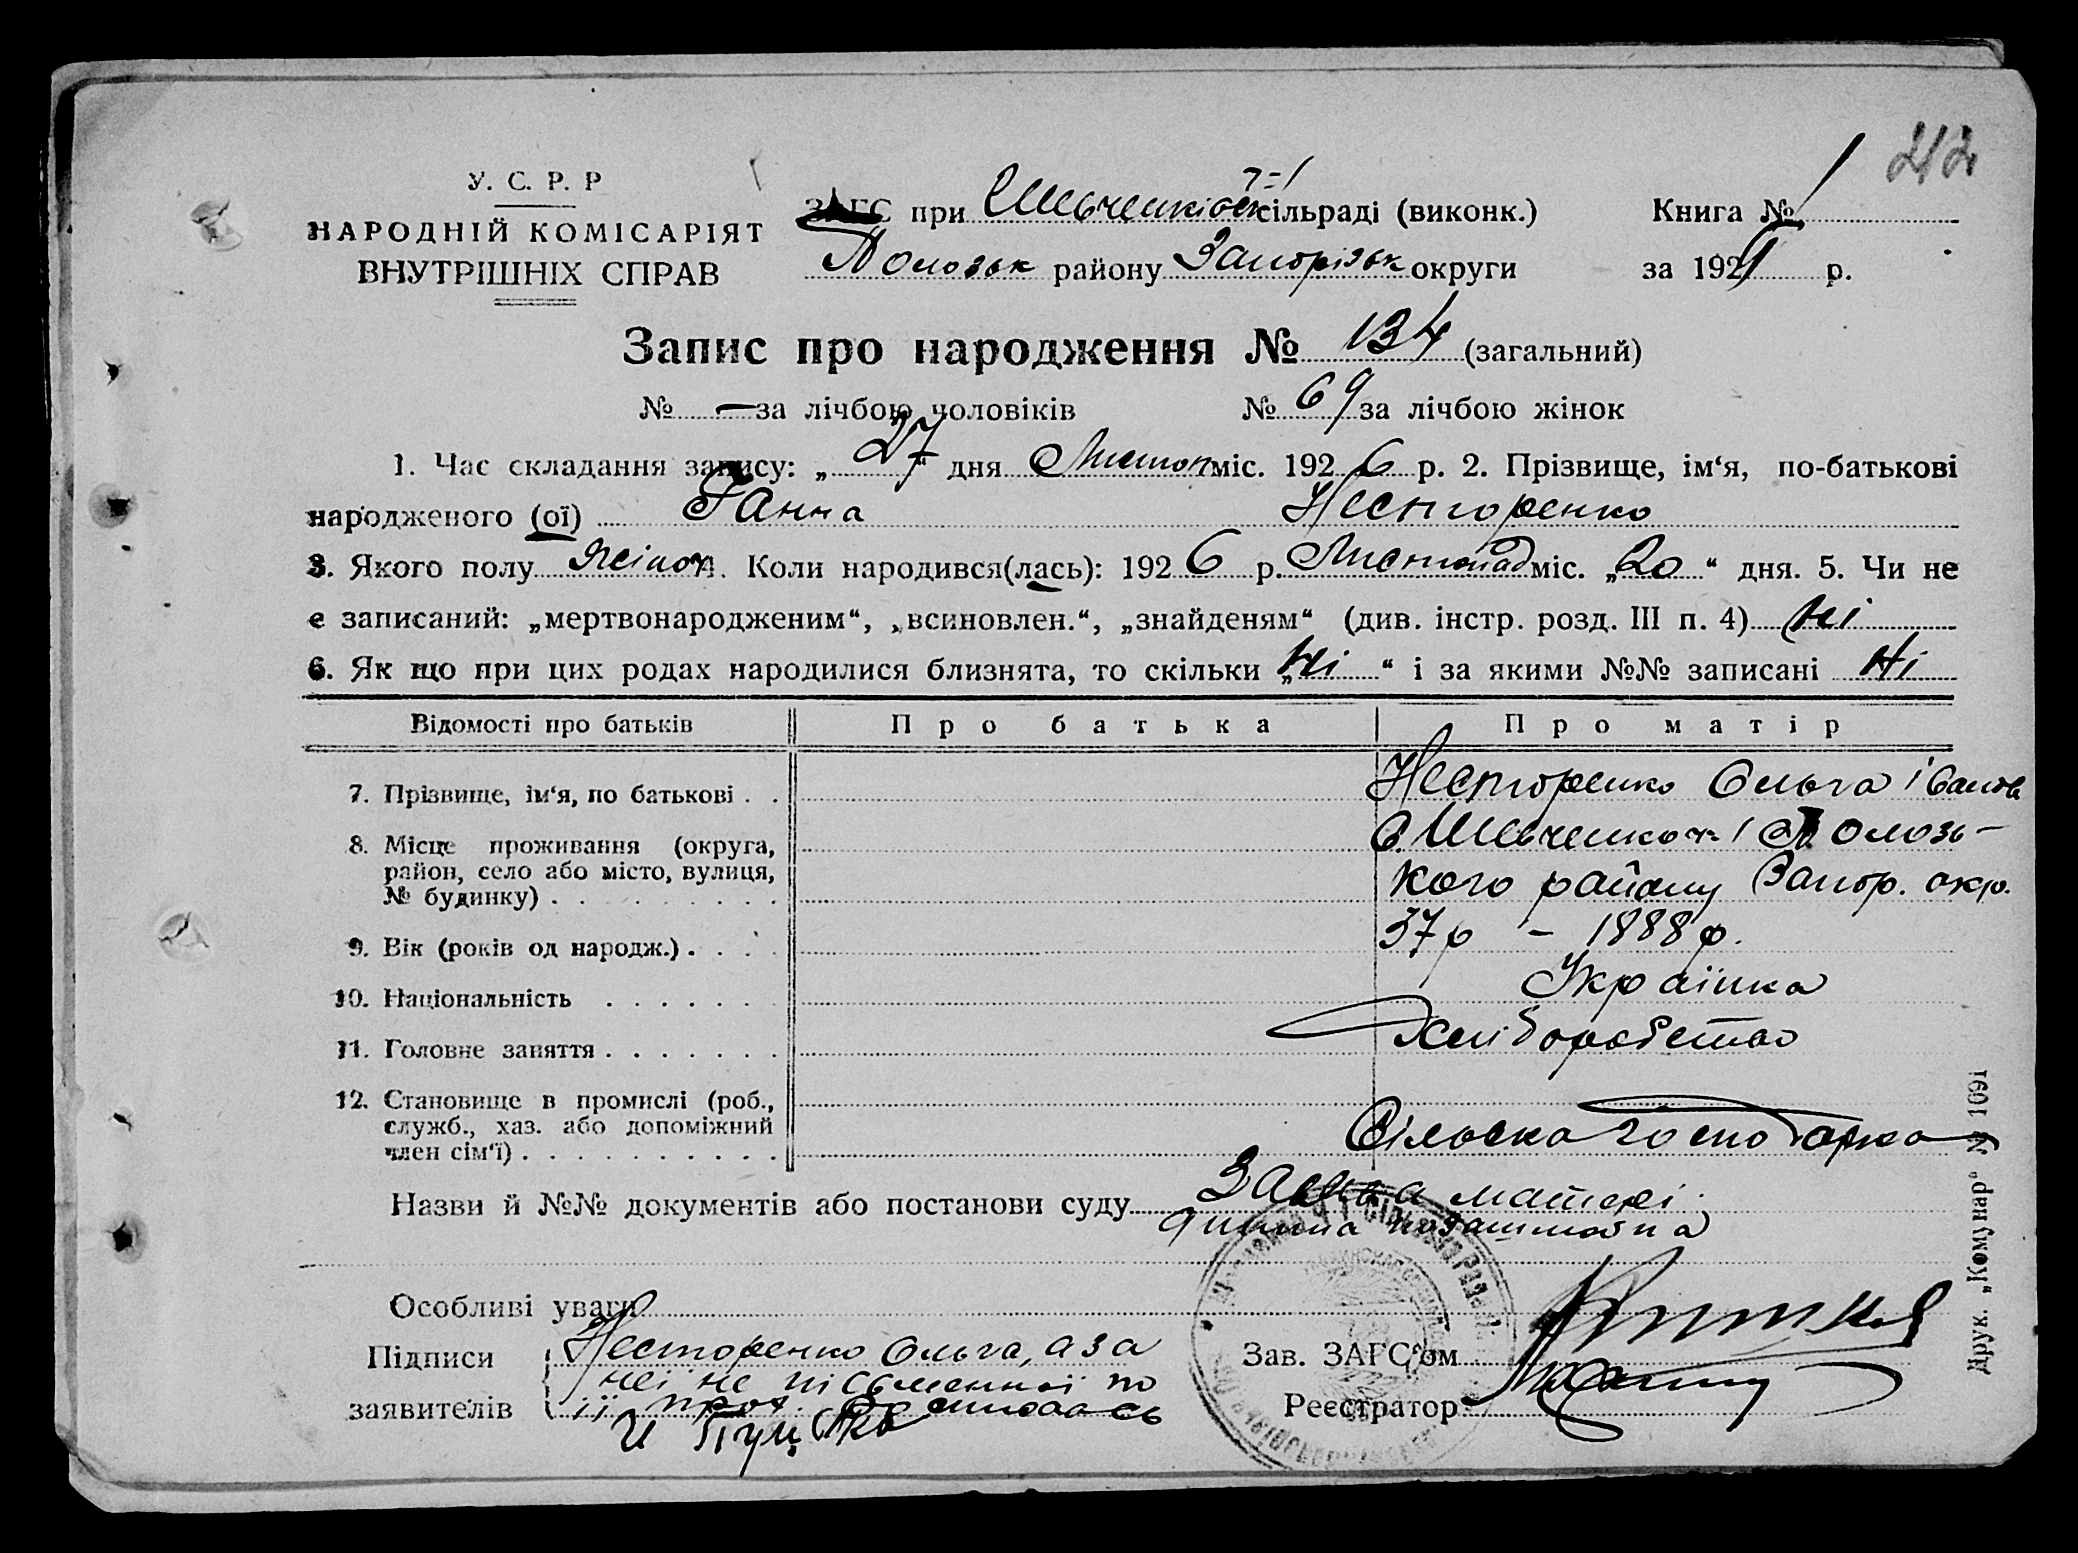 212
У. С. Р. Р
НАРОДНІЙ КОМІСАРІЯТ
ВНУТРІШНІХ СПРАВ
ЗАГС при Шевченківск №1 сільраді (виконк.) Книга № 1
Полозьк району Запорізьк округи за 192 р.
Запис про народження № 134 (загальний)
№ — за лічбою чоловіків № 69 за лічбою жінок
1. Час складання запису: „27“ дня Листоп міс. 1926 р. 2. Прізвище, ім‘я, по-батькові
народженого (ої) Ганна Несторенко
3. Якого полу жіноч 4. Коли народився(лась): 1926 р. Листопад міс. „20“ дня. 5. Чи не
є записаний: „мертвонародженим“, „всиновлен.“, „знайденям“ (див. інстр. розд. III п. 4) Ні
6. Як що при цих родах народилися близнята, то скільки „Ні“ і за якими №№ записані Ні
Відомості про батьків Про батька Про матір
7. Прізвище, ім‘я, по батькові . . Несторенко Ольга Іванов
8. Місце проживання (округа, район, село або місто, вулиця, № будинку) . с. Шевченко № 1 Полозь-
кого району Запор. окр.
9. Вік (років од народж.) . . . . 37 р – 1888 р.
10. Національність . . . . . . . Українка
11. Головне заняття . . . . . . . Хліборобство
12. Становище в промислі (роб., служб., хаз. або допоміжний член сім‘ї) . . . . . . . . . . Сільська господарка
Назви й №№ документів або постанови суду Заява матері
дитина позашлюбна
Особливі уваги
Підписи заявителів Несторенко Ольга, а за
неї не письменної по
її прох. росписалась
Зав. ЗАГС‘ом
Реєстратор
Друк. „Комунар“ № 1691